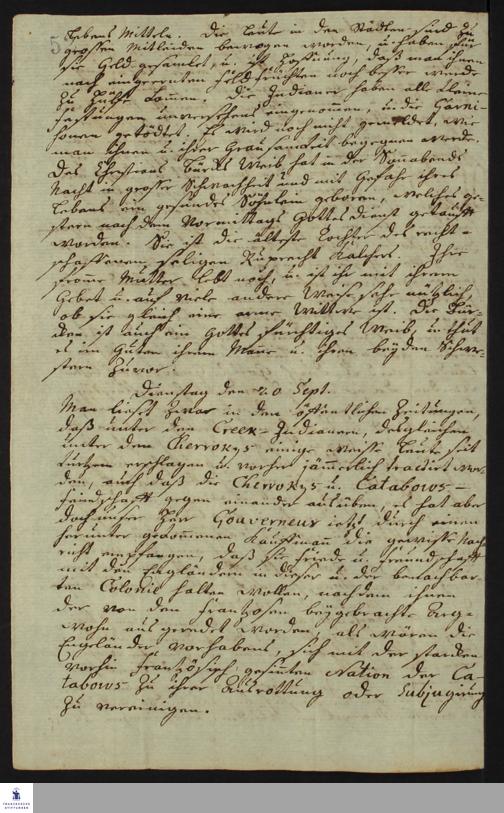 Lebens Mitteln. Die Leute in den Städten sind zu
grossen Mitleiden bewogen worden, u. haben für
sie Geld gesamlet, u. ist Hoffnung, daß man ihnen
nach eingeernten Feldfrüchten noch besser werde
zu Hülfe kommen. Die Indianer haben alle kleine
Festungen unversehens eingenommen, u. die Garni-
sonen getödtet. Es wird noch nicht gemeldet, wie
man ihnen u. ihrer Grausamkeit begegnen werde.
Des Christians Bürcks Weib hat in der Sonnabends
Nacht in grosser Schwachheit und mit Gefahr ihres
Lebens ein gesundes Söhnlein geboren, welches ge-
stern nach dem Vormittags Gottesdienst getauft
worden. Sie ist die älteste Tochter des recht-
schaffenen seligen Ruprecht Kalchers. Ihre
fromme Mutter lebt noch, u. ist ihr mit ihrem
Gebet u. auf viele andere Weise sehr nützlich,
ob sie gleich eine arme Wittwe ist. Die Bür-
ckin ist auch ein Gottesfürchtiges Weib, u. thut
es im Guten ihrem Mann u. ihren beyden Schwe-
stern zuvor.
Dienstag den 20 Sept.
Man lieset zwar in den öffentlichen Zeitungen,
daß unter den Creek-Indianern, desgleichen
unter den Cherrokys einige weisse Leute seit
kurzem erschlagen u. vorher jämmerlich tractirt wor-
den, auch daß die Cherrokys u. Catabaws
Feindschafft gegen einander ausüben, es hat aber
doch unser Herr Gouverneur jetzt durch einen
herunter gekommenen Kauffmann die gewisse Nach-
richt empfangen, daß sie Friede u. Freundschafft
mit den Engländern in dieser u. der benachbar-
ten Colonie halten wollen, nachdem ihnen
der von den Franzosen beygebrachte Arg-
wohn ausgeredet worden, als wären die
Engländer Vorhabens, sich mit der starken
vorhin Französisch gesinten Nation der Ca-
tabaws zu ihrer Ausrottung oder Subjugirung
zu vereinigen.
FRANCKESCHE
STIFTUNGEN